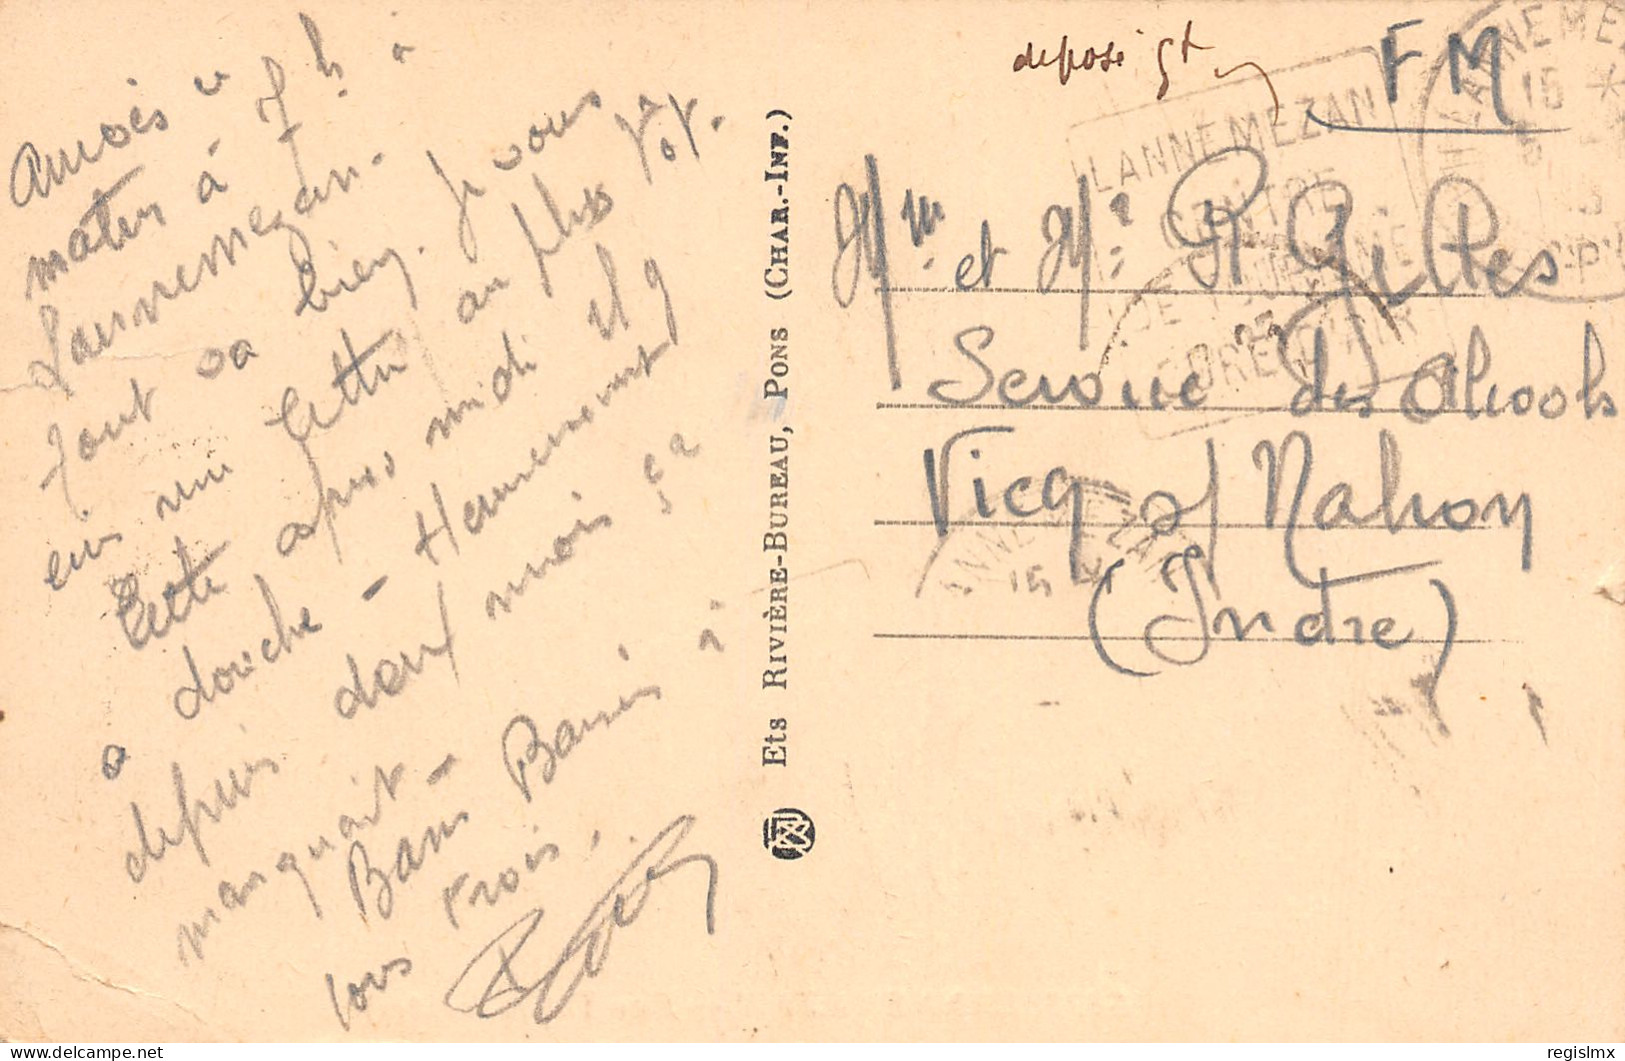 Arrivés ce
matin à 7h à
Lannemezan.
Tout va bien. Je vous
écris une lettre au plus tôt.
Cette après midi il y
a douche - Heureusement
depuis deux mois ça
manquait -
Bons Baisers à
tous trois.
Ets RIVIÈRE-BUREAU, PONS (CHAR.-INF.)
deposé gt
F M
LANNEMEZAN
15 *
LANNEMEZAN
CENTRE
DE TOURISME
CURE D'AIR
Mr et Me R Gilles
Service des Alcools
Vicq s/ Nahon
(Indre)
ANNEMEZAN
15
regislmx
delcampe.net